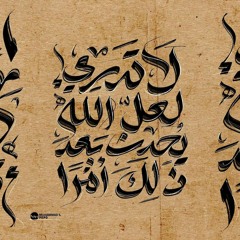 لَا تَدْرِي
لَعَلَّ اللَّهَ
يُحْدِثُ بَعْدَ
ذَٰلِكَ أَمْرًا